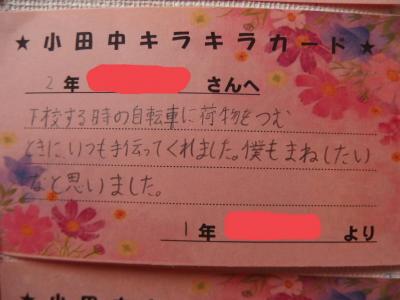 ★小田中キラキラカード★
2年 さんへ
下校する時の自転車に荷物をつむ
ときに、いつも手伝ってくれました。僕もまねしたい
なと思いました。
1年 より